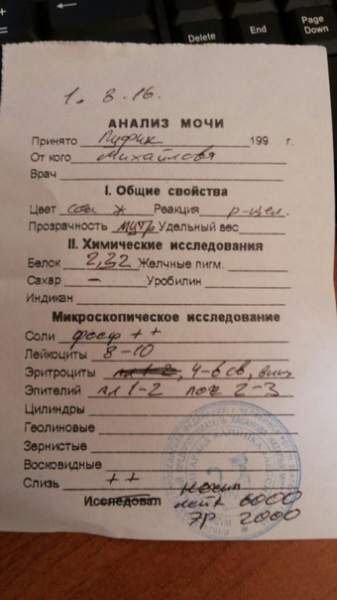 Delete
End
Page Down
1. 8. 16.
АНАЛИЗ МОЧИ
Принято Пуфик 199 г.
От кого Михайловя
Врач
I. Общие свойства
Цвет сол ж Реакция р-щел.
Прозрачность мутн Удельный вес
II. Химические исследования
Белок 2,32 Желчные пигм.
Сахар – Уробилин
Индикан
Микроскопическое исследование
Соли фосф ++
Лейкоциты 8-10
Эритроциты 4-6 св, выщ
Эпителий пл 1-2 поч 2-3
Цилиндры
Геолиновые
Зернистые
Восковидные
Слизь ++
Исследовал лейк 6000
эр 2000